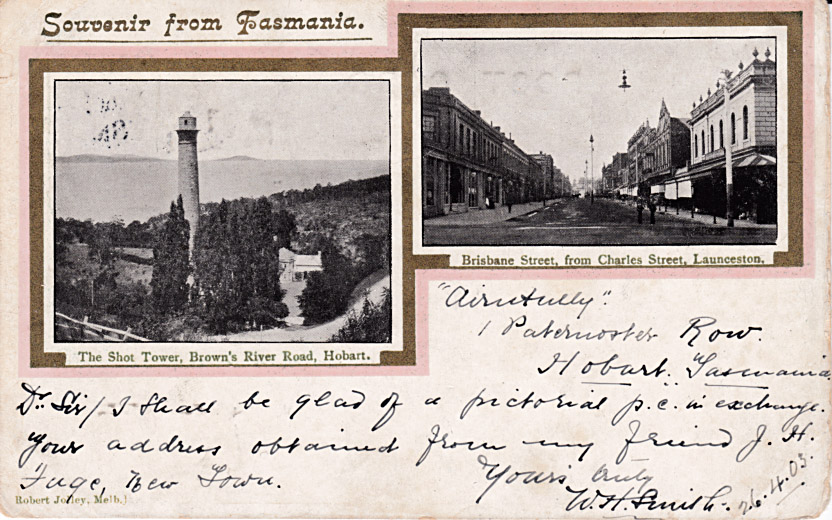 Souvenir from Tasmania.
Brisbane Street, from Charles Street, Launceston.
The Shot Tower, Brown's River Road, Hobart.
1 Paternoster Row.
Hobart. Tasmania
Dr. Sir/ I Shall be glad of a pictorial p.c. in exchange.
Your address obtained from my friend J. H.
New Town.
Yours truly
W.H. Smith. 26.4.03.
Robert Jolley, Melb.